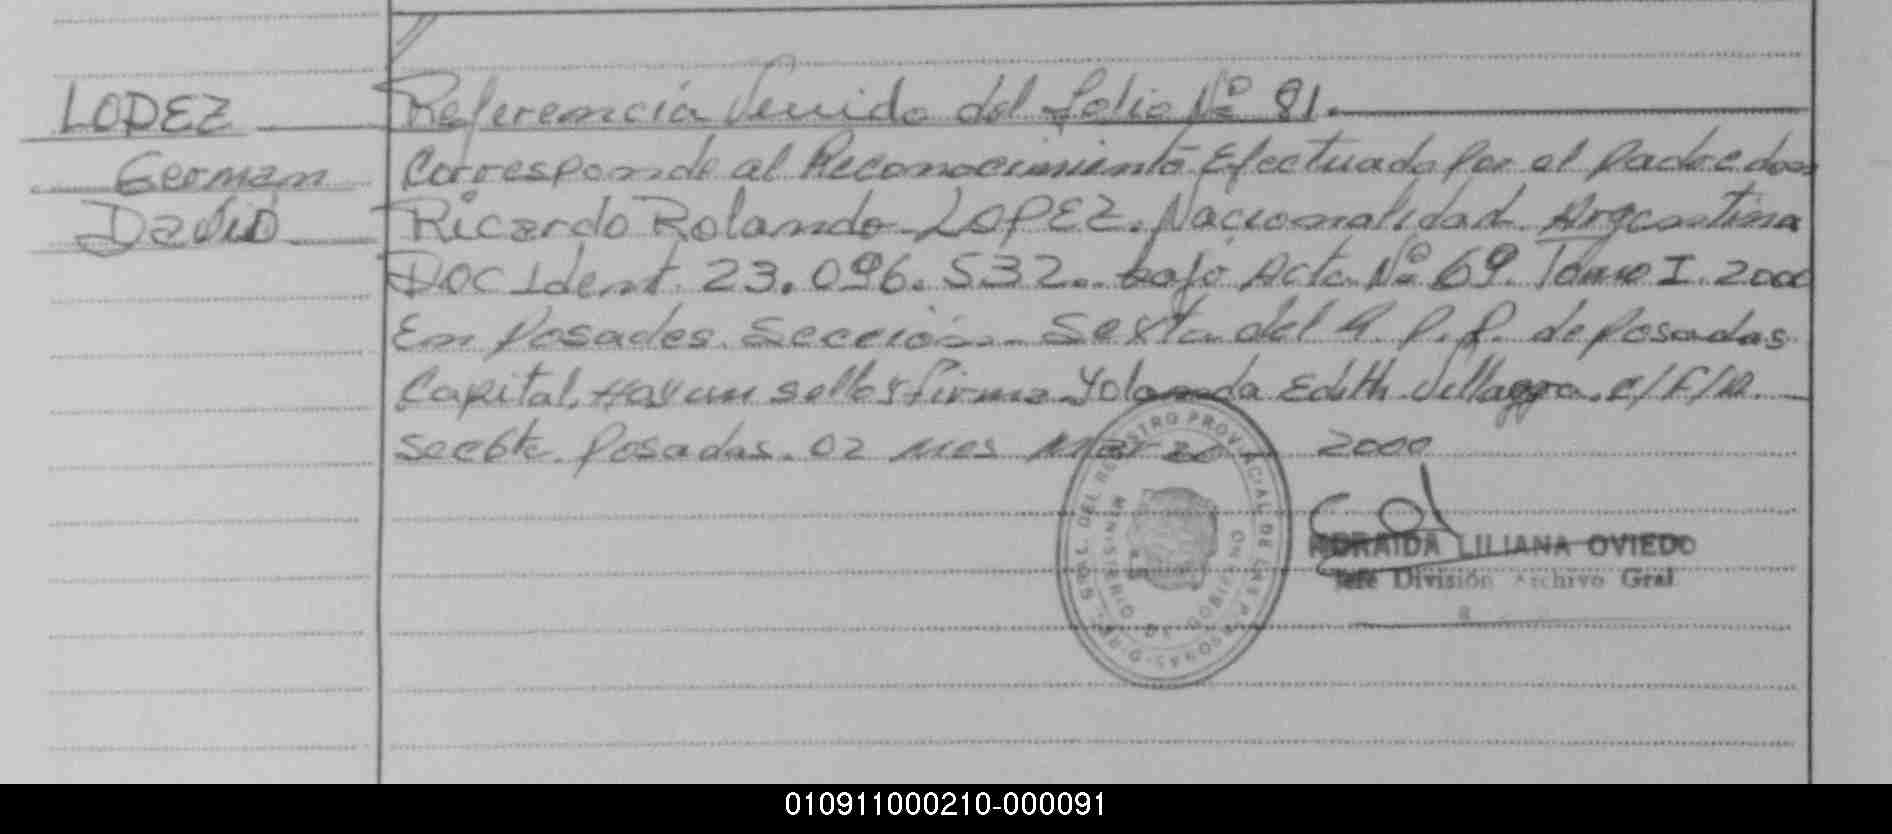 LOPEZ
German
David
Referencia Venida del folio Nº 81.
Corresponde al Reconocimiento Efectuado por el padre don
Ricardo Rolando LOPEZ. Nacionalidad Argentina
DOC Ident. 23.096.532.. bajo Acta Nº 69. Tomo I. 2000
En Posadas. Sección Sexta del R. P. P. de Posadas
Capital. Hay un sello y firma Yolanda Edith Villagra. E/F/R.
Posadas. 02 mes Marzo 2000
DEL REGISTRO PROVINCIAL DE LAS PERSONAS
MINISTERIO DE GOBIERNO
LILIANA OVIEDO
Jefe División Archivo Gral
010911000210-000091